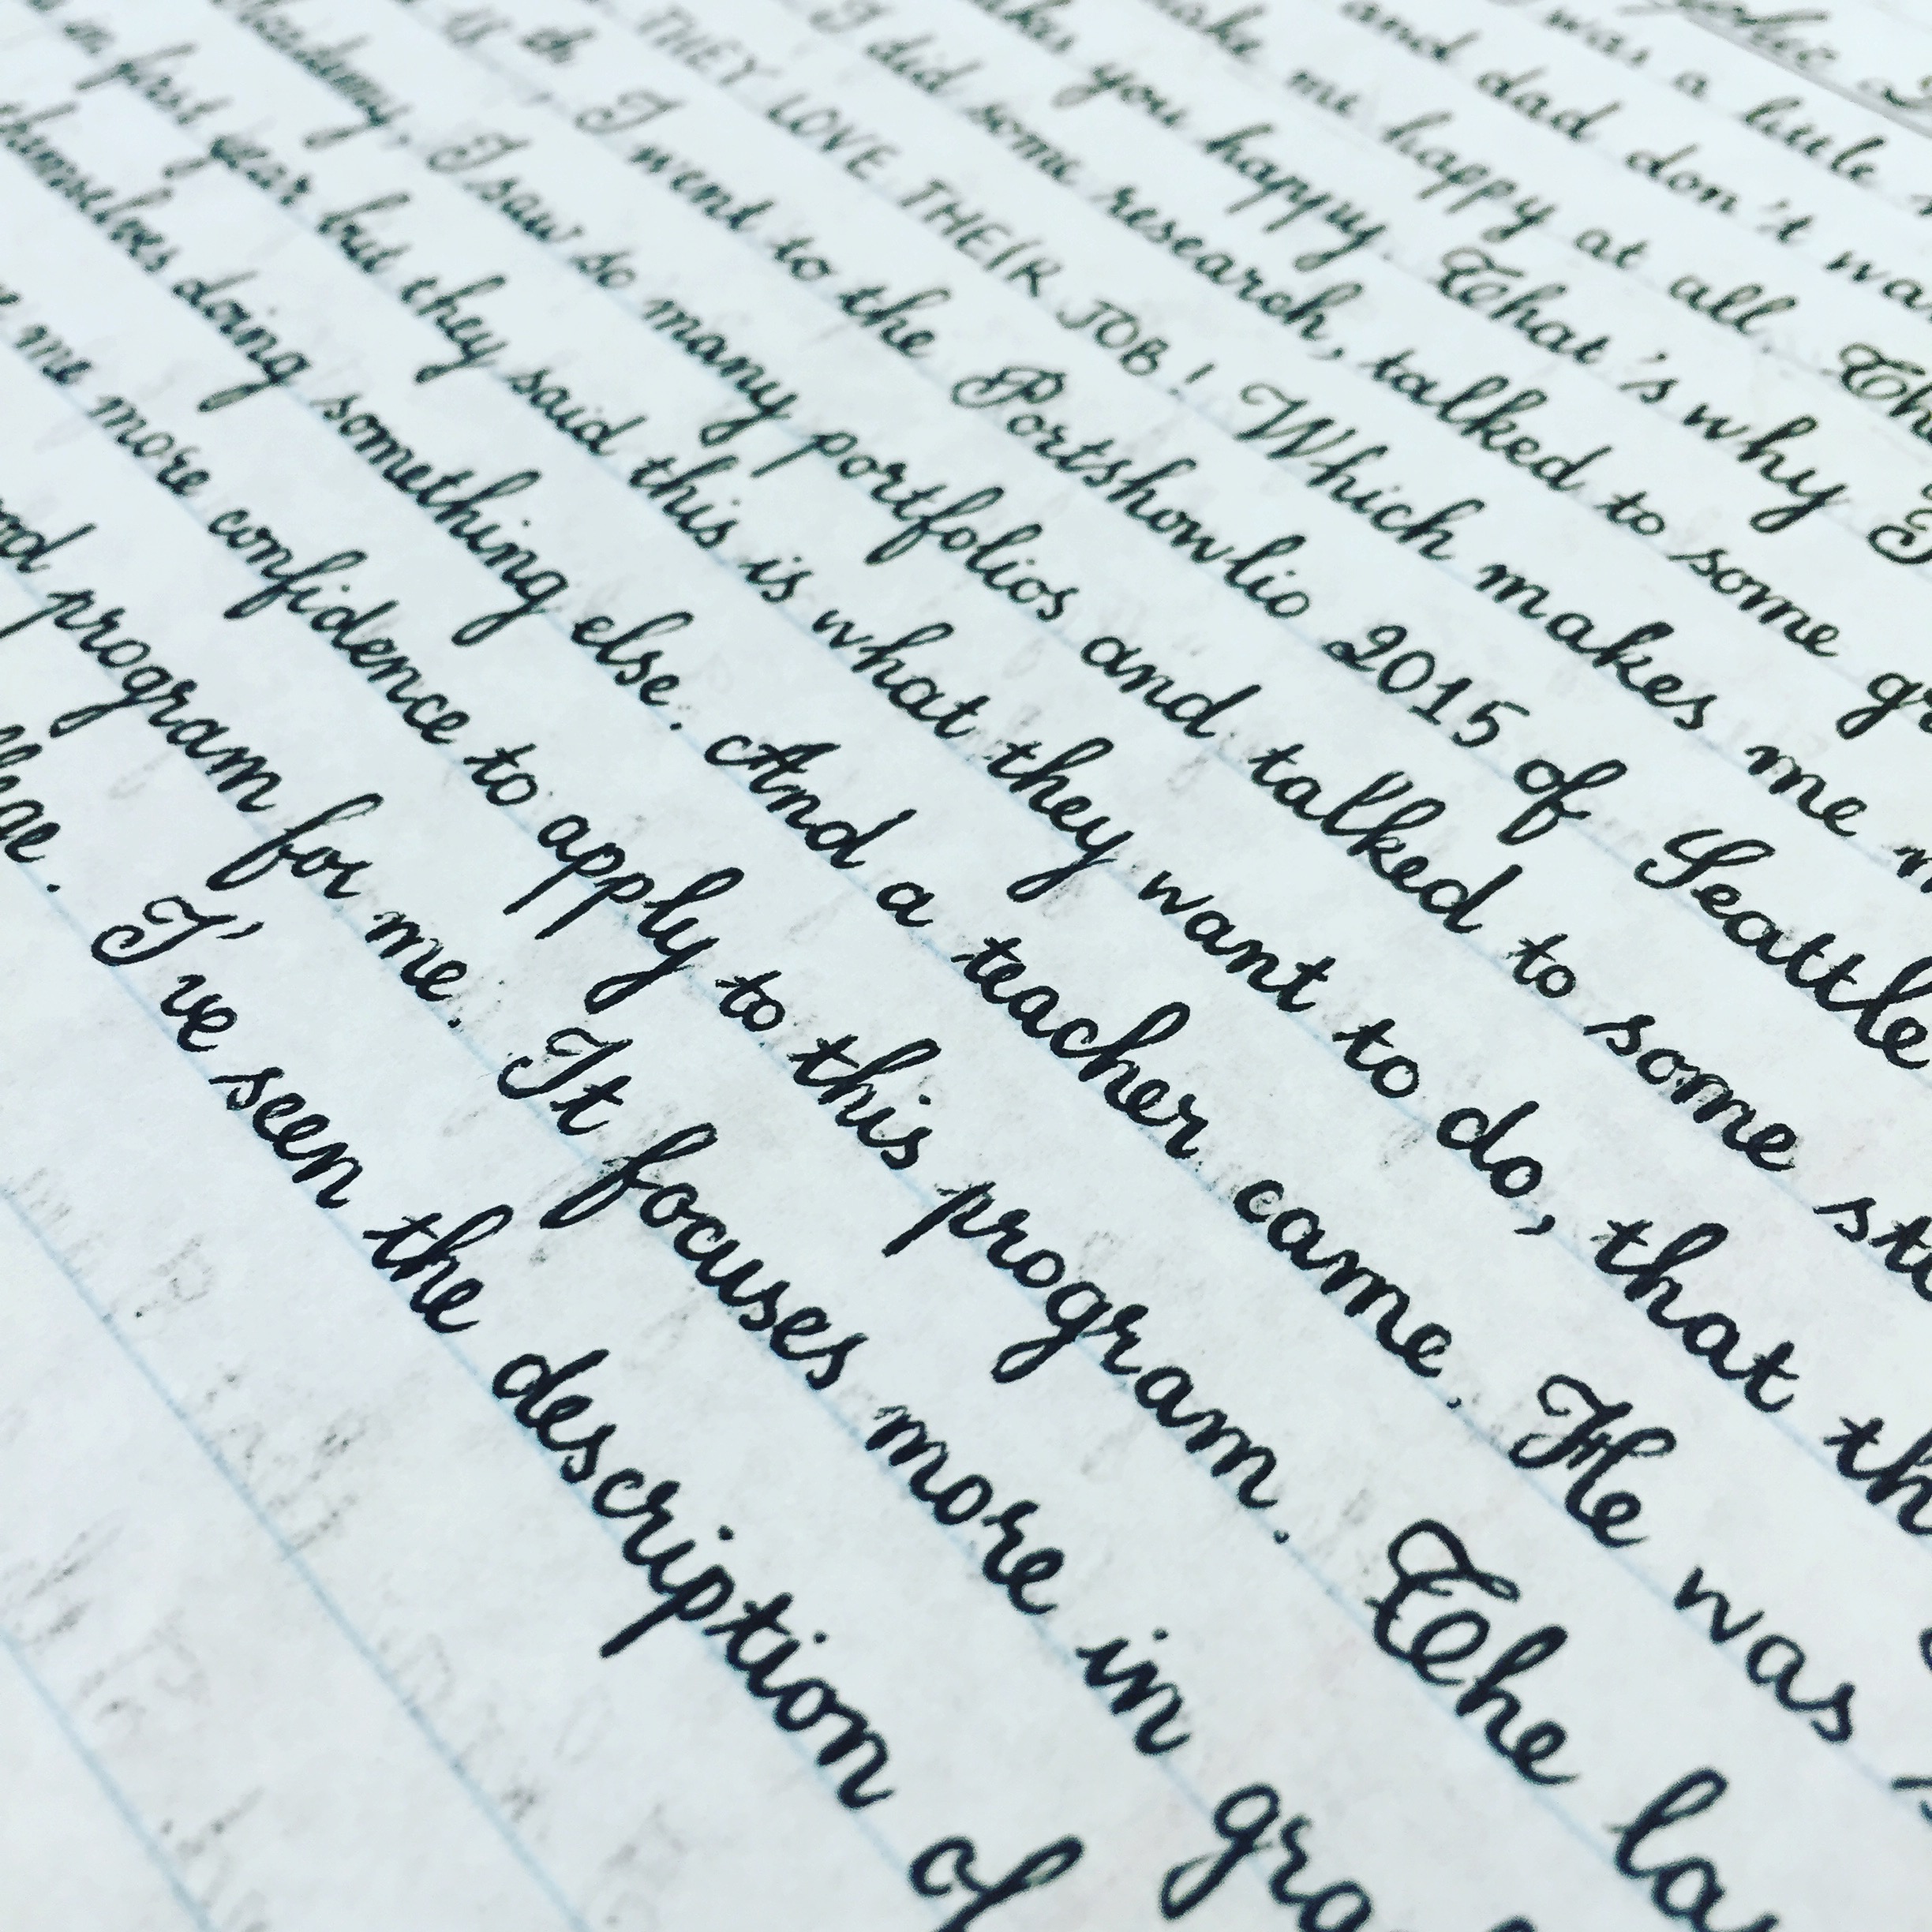 was a little
and dad don't wa
make me happy at all. The
you happy. That's why I
I did some research, talked to some gr
THEY LOVE THEIR JOB! Which makes me
I went to the Portshowlio 2015 of Seattle
Academy, I saw so many portfolios and talked to some st
in first year but they said this is what they want to do, that th
themselves doing something else. And a teacher came. He was
me more confidence to apply to this program. The las
program for me. It focuses more in gra
llege. I've seen the description of